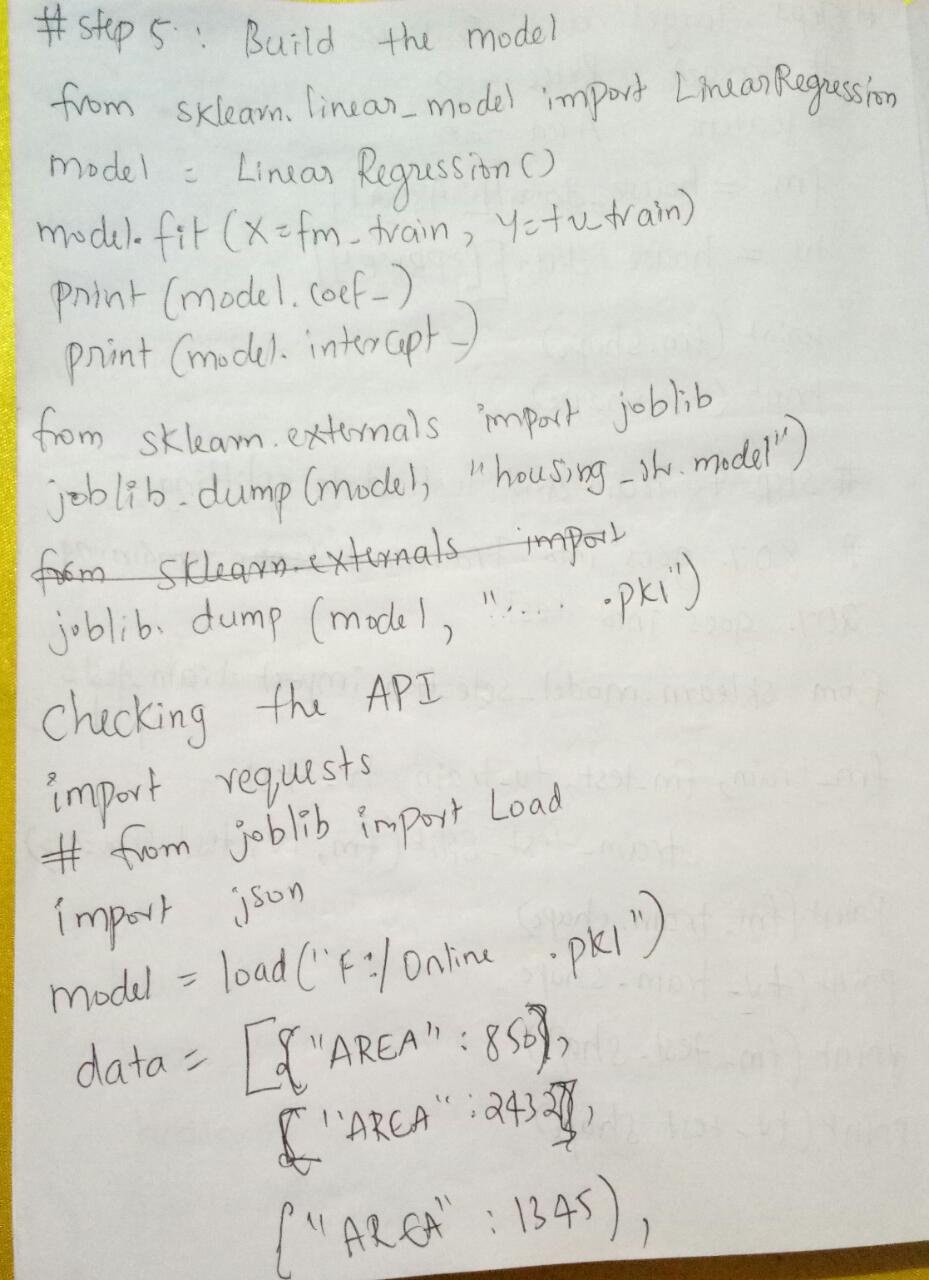 # step 5 : Build the model
from sklearn. linear_model import LinearRegression
model = Linear Regression()
model. fit (X=fm_train, Y=tv_train)
print (model. coef_)
print (model. intercept_)
from sklearn. externals import joblib
joblib. dump (model, "housing_shr. model")
from sklearn. externals import
joblib. dump (model, "..... .pkl")
Checking the API
import requests
# from joblib import Load
import json
model = load("F:/ Online .pkl")
data = [{"AREA" : 850},
{"AREA" : 2432},
{"AREA" : 1345),